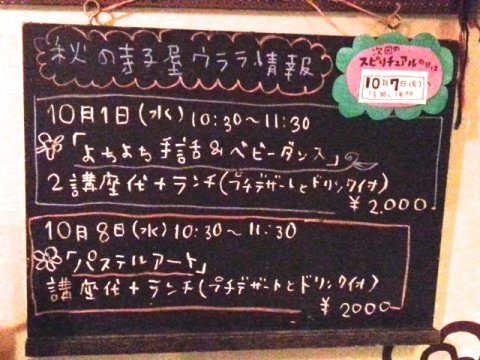 秋の寺子屋ウララ情報
次回の
スピリチュアルの日は
10月7日(火)
10月1日(水) 10:30〜11:30
「よちよち手話&ベビーダンス」
2講座代+ランチ(プチデザートとドリンク付)
¥2,000
10月8日(水) 10:30〜11:30
「パステルアート」
講座代+ランチ(プチデザートとドリンク付)
¥2000